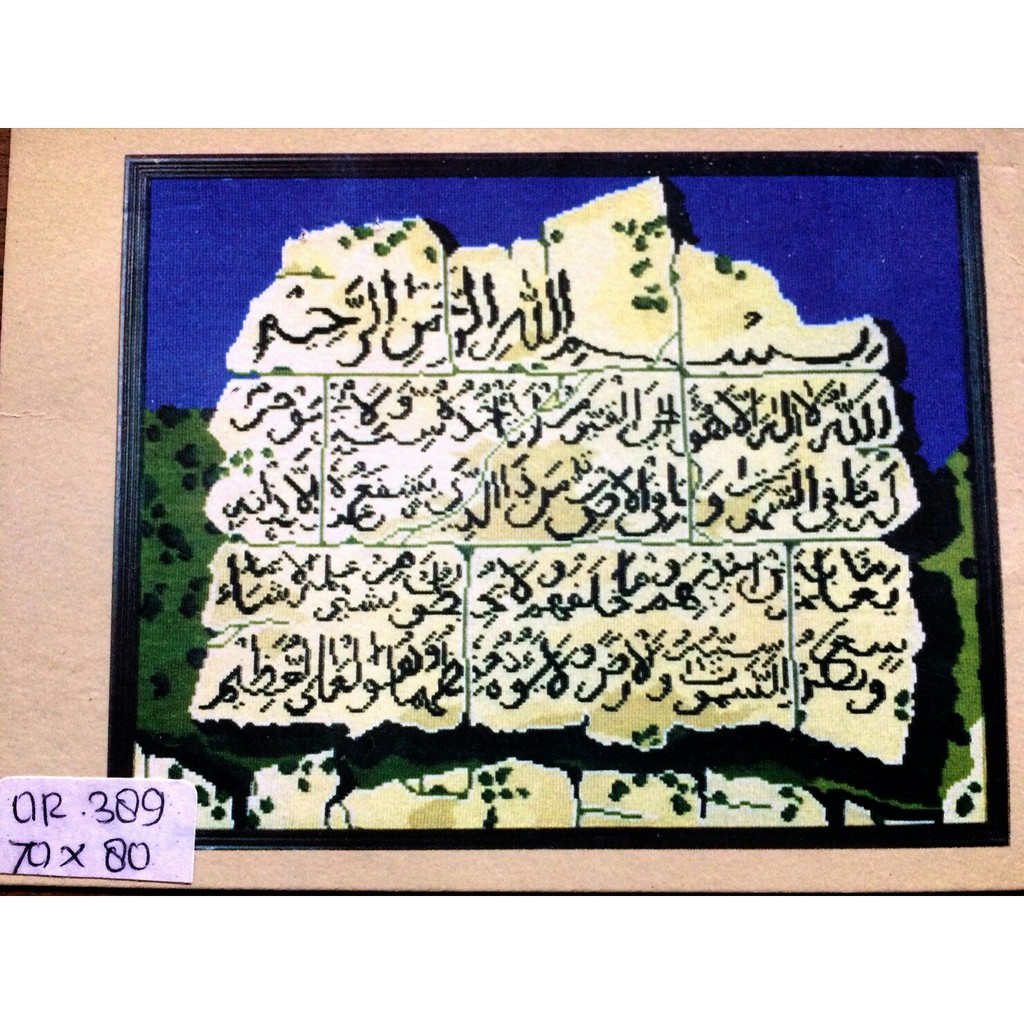 بِسْمِ اللهِ الرَّحْمنِ الرَّحِيمِ
اللهُ لا اله الا هو الحي القيوم لا تأخذه سنة ولا نوم
له ما في السموات وما في الارض من ذا الذي يشفع عنده الا بإذنه
يعلم ما بين ايديهم وما خلفهم ولا يحيطون بشيء من علمه الا بما شاء
وسع كرسيه السموات والارض ولا يؤده حفظهما وهو العلي العظيم
AR . 389
70 x 80